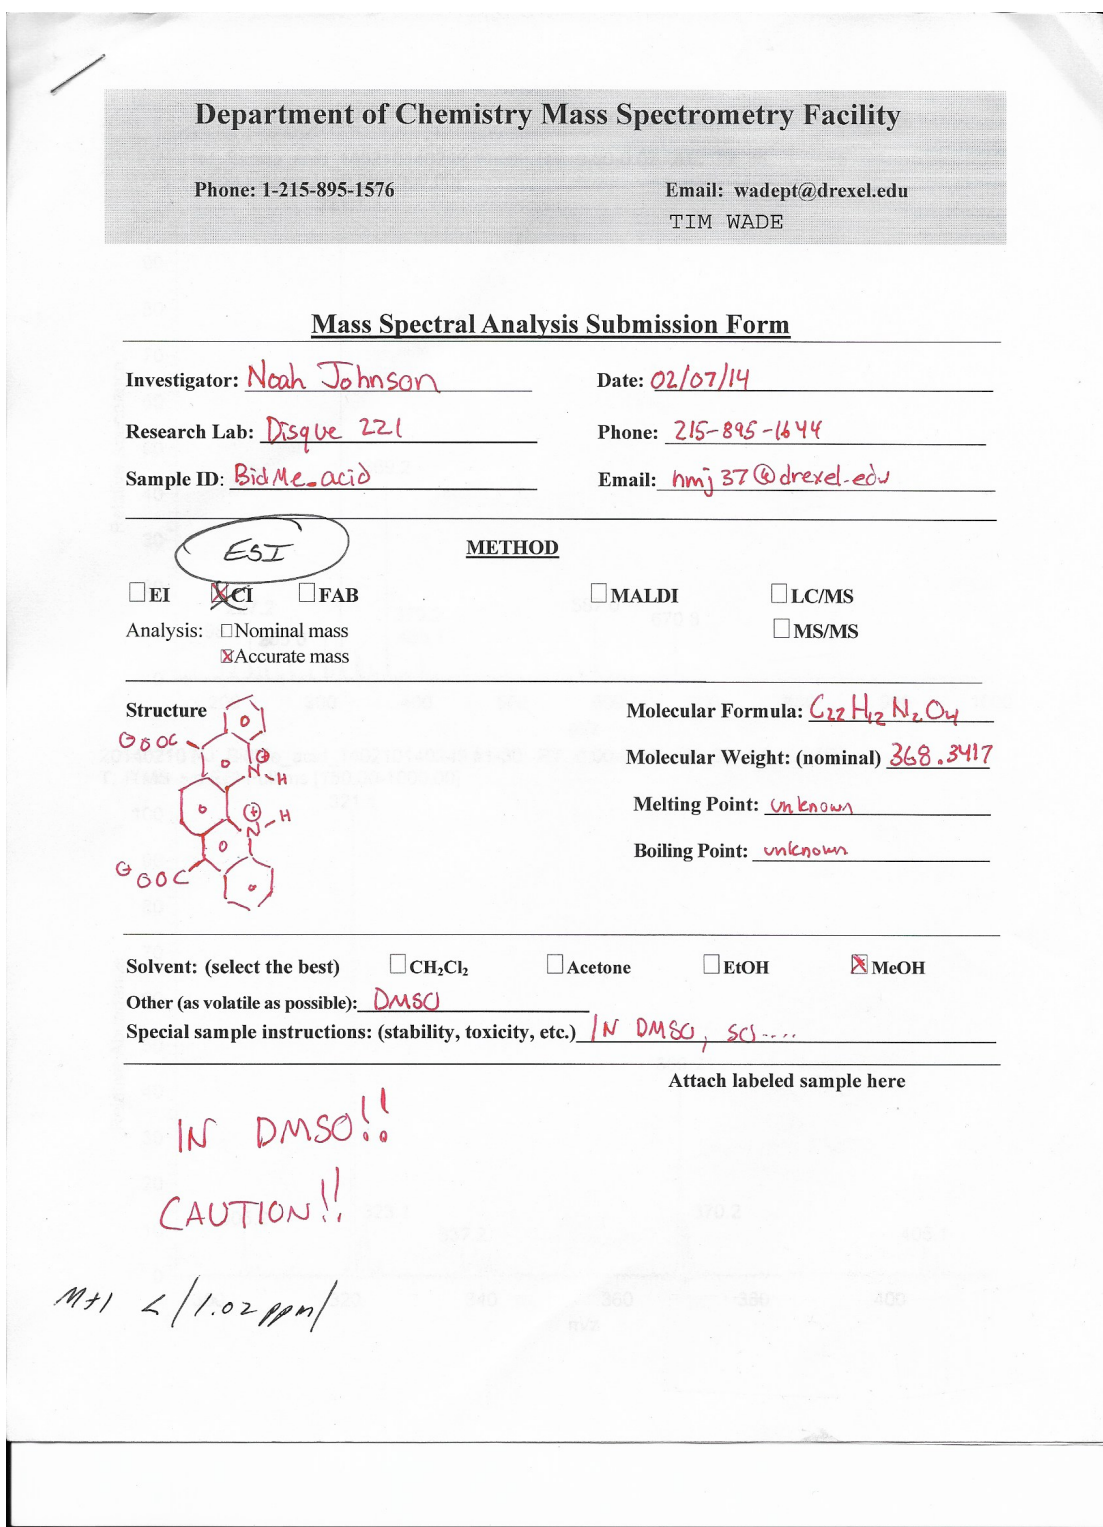 Department of Chemistry Mass Spectrometry Facility
Phone: 1-215-895-1576 Email: wadept@drexel.edu
TIM WADE
Mass Spectral Analysis Submission Form
Investigator: Noah Johnson Date: 02/07/14
Research Lab: Disque 221 Phone: 215-895-1644
Sample ID: BidMe_acid Email: nmj37@drexel.edu
ESI
METHOD
EI CI FAB MALDI LC/MS
Analysis: Nominal mass MS/MS
Accurate mass
Structure Molecular Formula: C22H12N2O4
⊖OOC
N⊕-H
Molecular Weight: (nominal) 368.3417
Melting Point: unknown
⊕N-H
Boiling Point: unknown
⊖OOC
Solvent: (select the best) CH2Cl2 Acetone EtOH MeOH
Other (as volatile as possible): DMSO
Special sample instructions: (stability, toxicity, etc.) IN DMSO,
Attach labeled sample here
IN DMSO!!
CAUTION!!
M+1 < |1.02 ppm|